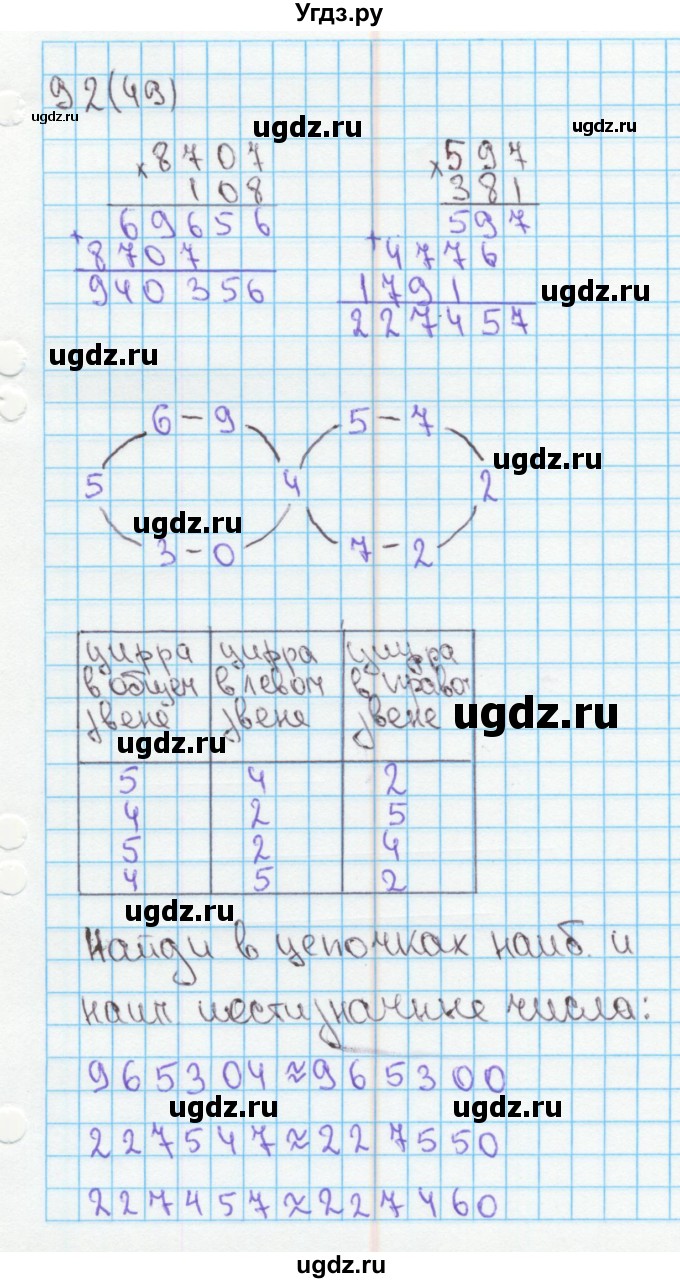 Угдз.ру
92(49)
ugdz.ru
ugdz.ru
ugdz.ru
× 8707
108
69656
+ 8707
940356
× 597
381
597
+ 4776
1791
227457
ugdz.ru
ugdz.ru
6 – 9
5 – 7
5
4
2
ugdz.ru
ugdz.ru
3 – 0
7 – 2
цифра в общем звене
цифра в левом звене
цифра в право звене
ugdz.ru
ugdz.ru
5 4 2
4 2 5
5 2 4
4 5 2
ugdz.ru
Найди в цепочках наиб. и
наим шестизначные числа:
965304≈965300
ugdz.ru
ugdz.ru
227547≈227550
227457≈227460
ugdz.ru